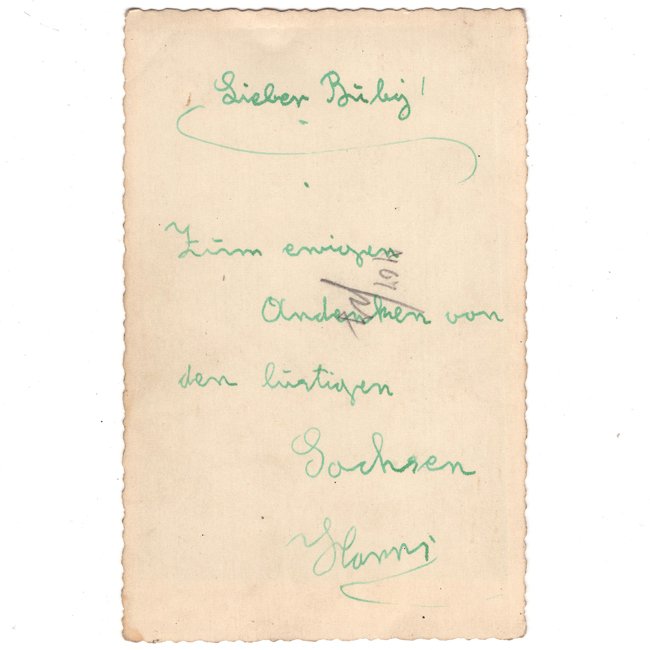 Lieber Buby!
Zum ewigen
Andenken von
den lustigen
Sachsen
Hanni